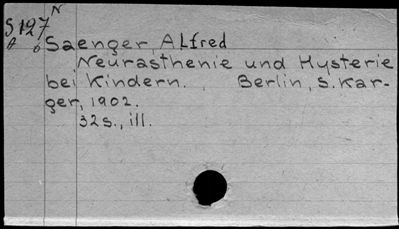 N
S127
A 6 Saenger, Alfred
Neurasthenie und Hysterie
bei Kindern. Berlin, S. Kar-
ger, 1902.
32 s., ill.